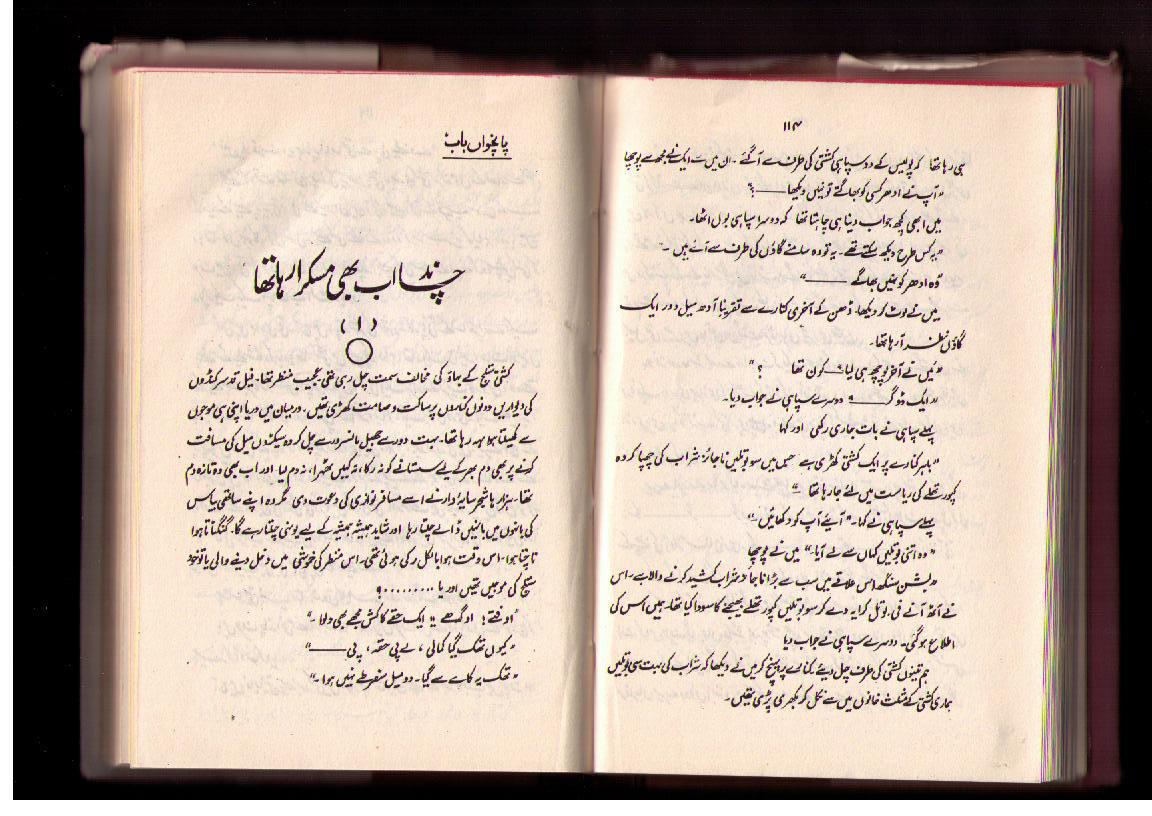 ۱۱۴
ہی رہا تھا کہ پولیس کے دو سپاہی کشتی کی طرف سے آ گئے ۔ ان میں سے ایک نے مجھ سے پوچھا
"آپ نے ادھر کسی کو بھاگتے تو نہیں دیکھا ——؟"
میں ابھی کچھ جواب دینا ہی چاہتا تھا کہ دوسرا سپاہی بول اٹھا۔
"یہ کس طرح دیکھ سکتے تھے ۔ یہ تو وہ سامنے گاؤں کی طرف سے آئے ہیں ۔"
"وہ ادھر کو نہیں بھاگے ——"
میں نے لوٹ کر دیکھا۔ ڈھن کے آخری کنارے سے تقریباً آدھ میل دور ایک
گاؤں نظر آ رہا تھا۔
"میں نے آخر پوچھ ہی لیا؟ کون تھا ؟"
"ایک ڈوگر —— " دوسرے سپاہی نے جواب دیا۔
پہلے سپاہی نے بات جاری رکھی اور کہا
"باہر کنارے پر ایک کشتی کھڑی ہے جس میں سو بوتلیں ناجائز شراب کی چھپا کر وہ
کپور تھلے کی ریاست میں لئے جا رہا تھا ۔"
پہلے سپاہی نے کہا۔ "آیئے آپ کو دکھائیں۔"
"وہ اتنی بوتلیں کہاں سے لے آیا۔" میں نے پوچھا
"بشن سنگھ اس علاقے میں سب سے بڑا ناجائز شراب کشید کرنے والا ہے ۔ اس
نے آٹھ آنے فی بوتل کرایہ دے کر سو بوتلیں کپور تھلے بھیجنے کا سودا کیا تھا۔ ہمیں اس کی
اطلاع ہو گئی۔ دوسرے سپاہی نے جواب دیا
ہم تینوں کشتی کی طرف چل دیئے۔ کنارے پر پہنچ کر میں نے دیکھا کہ شراب کی بہت سی بوتلیں
ہماری کشتی کے مثلث خانوں میں سے نکل کر بکھری پڑی تھیں۔
پانچواں باب
چاند اب بھی مسکرا رہا تھا
(۱)
کشتی ستلج کے بہاؤ کی مخالف سمت چل رہی تھی۔ عجیب منظر تھا۔ فیل قد سرکنڈوں
کی دیواریں دونوں کناروں پر ساکت و صامت کھڑی تھیں۔ درمیان میں دریا اپنی ہی موجوں
سے کھیلتا ہوا بہہ رہا تھا۔ بہت دور سے جھیل مانسرور سے چل کر وہ سیکنڈوں میل کی مسافت
کرنے پر بھی دم بھر کے لیے سستانے کو نہ رکا، نہ کہیں ٹھہرا، نہ دم لیا۔ اور اب بھی وہ تازہ دم
تھا۔ ہزار ہا شجر سایہ دار نے اسے مسافر نوازی کی دعوت دی مگر وہ اپنے ساتھی بیاس
کی بانہوں میں بانہیں ڈالے چلتا رہا اور شاید ہمیشہ ہمیشہ کے لیے یونہی چلتا رہے گا۔ گنگناتا ہوا
ناچتا ہوا۔ اس وقت ہوا بالکل رکی ہوئی تھی۔ اس منظر کی خموشی میں دخل دینے والی یا تو خود
ستلج کی موجیں تھیں اور یا .........؟
"او فتے! او گھسے یہ ایک حقے کا کش مجھے بھی دلوا ۔"
"کیوں تھک گیا کمالی، لے پی حقہ، پی ——"
"تھک یہ کاہے سے گیا۔ دو میل سفر طے نہیں ہوا ۔"